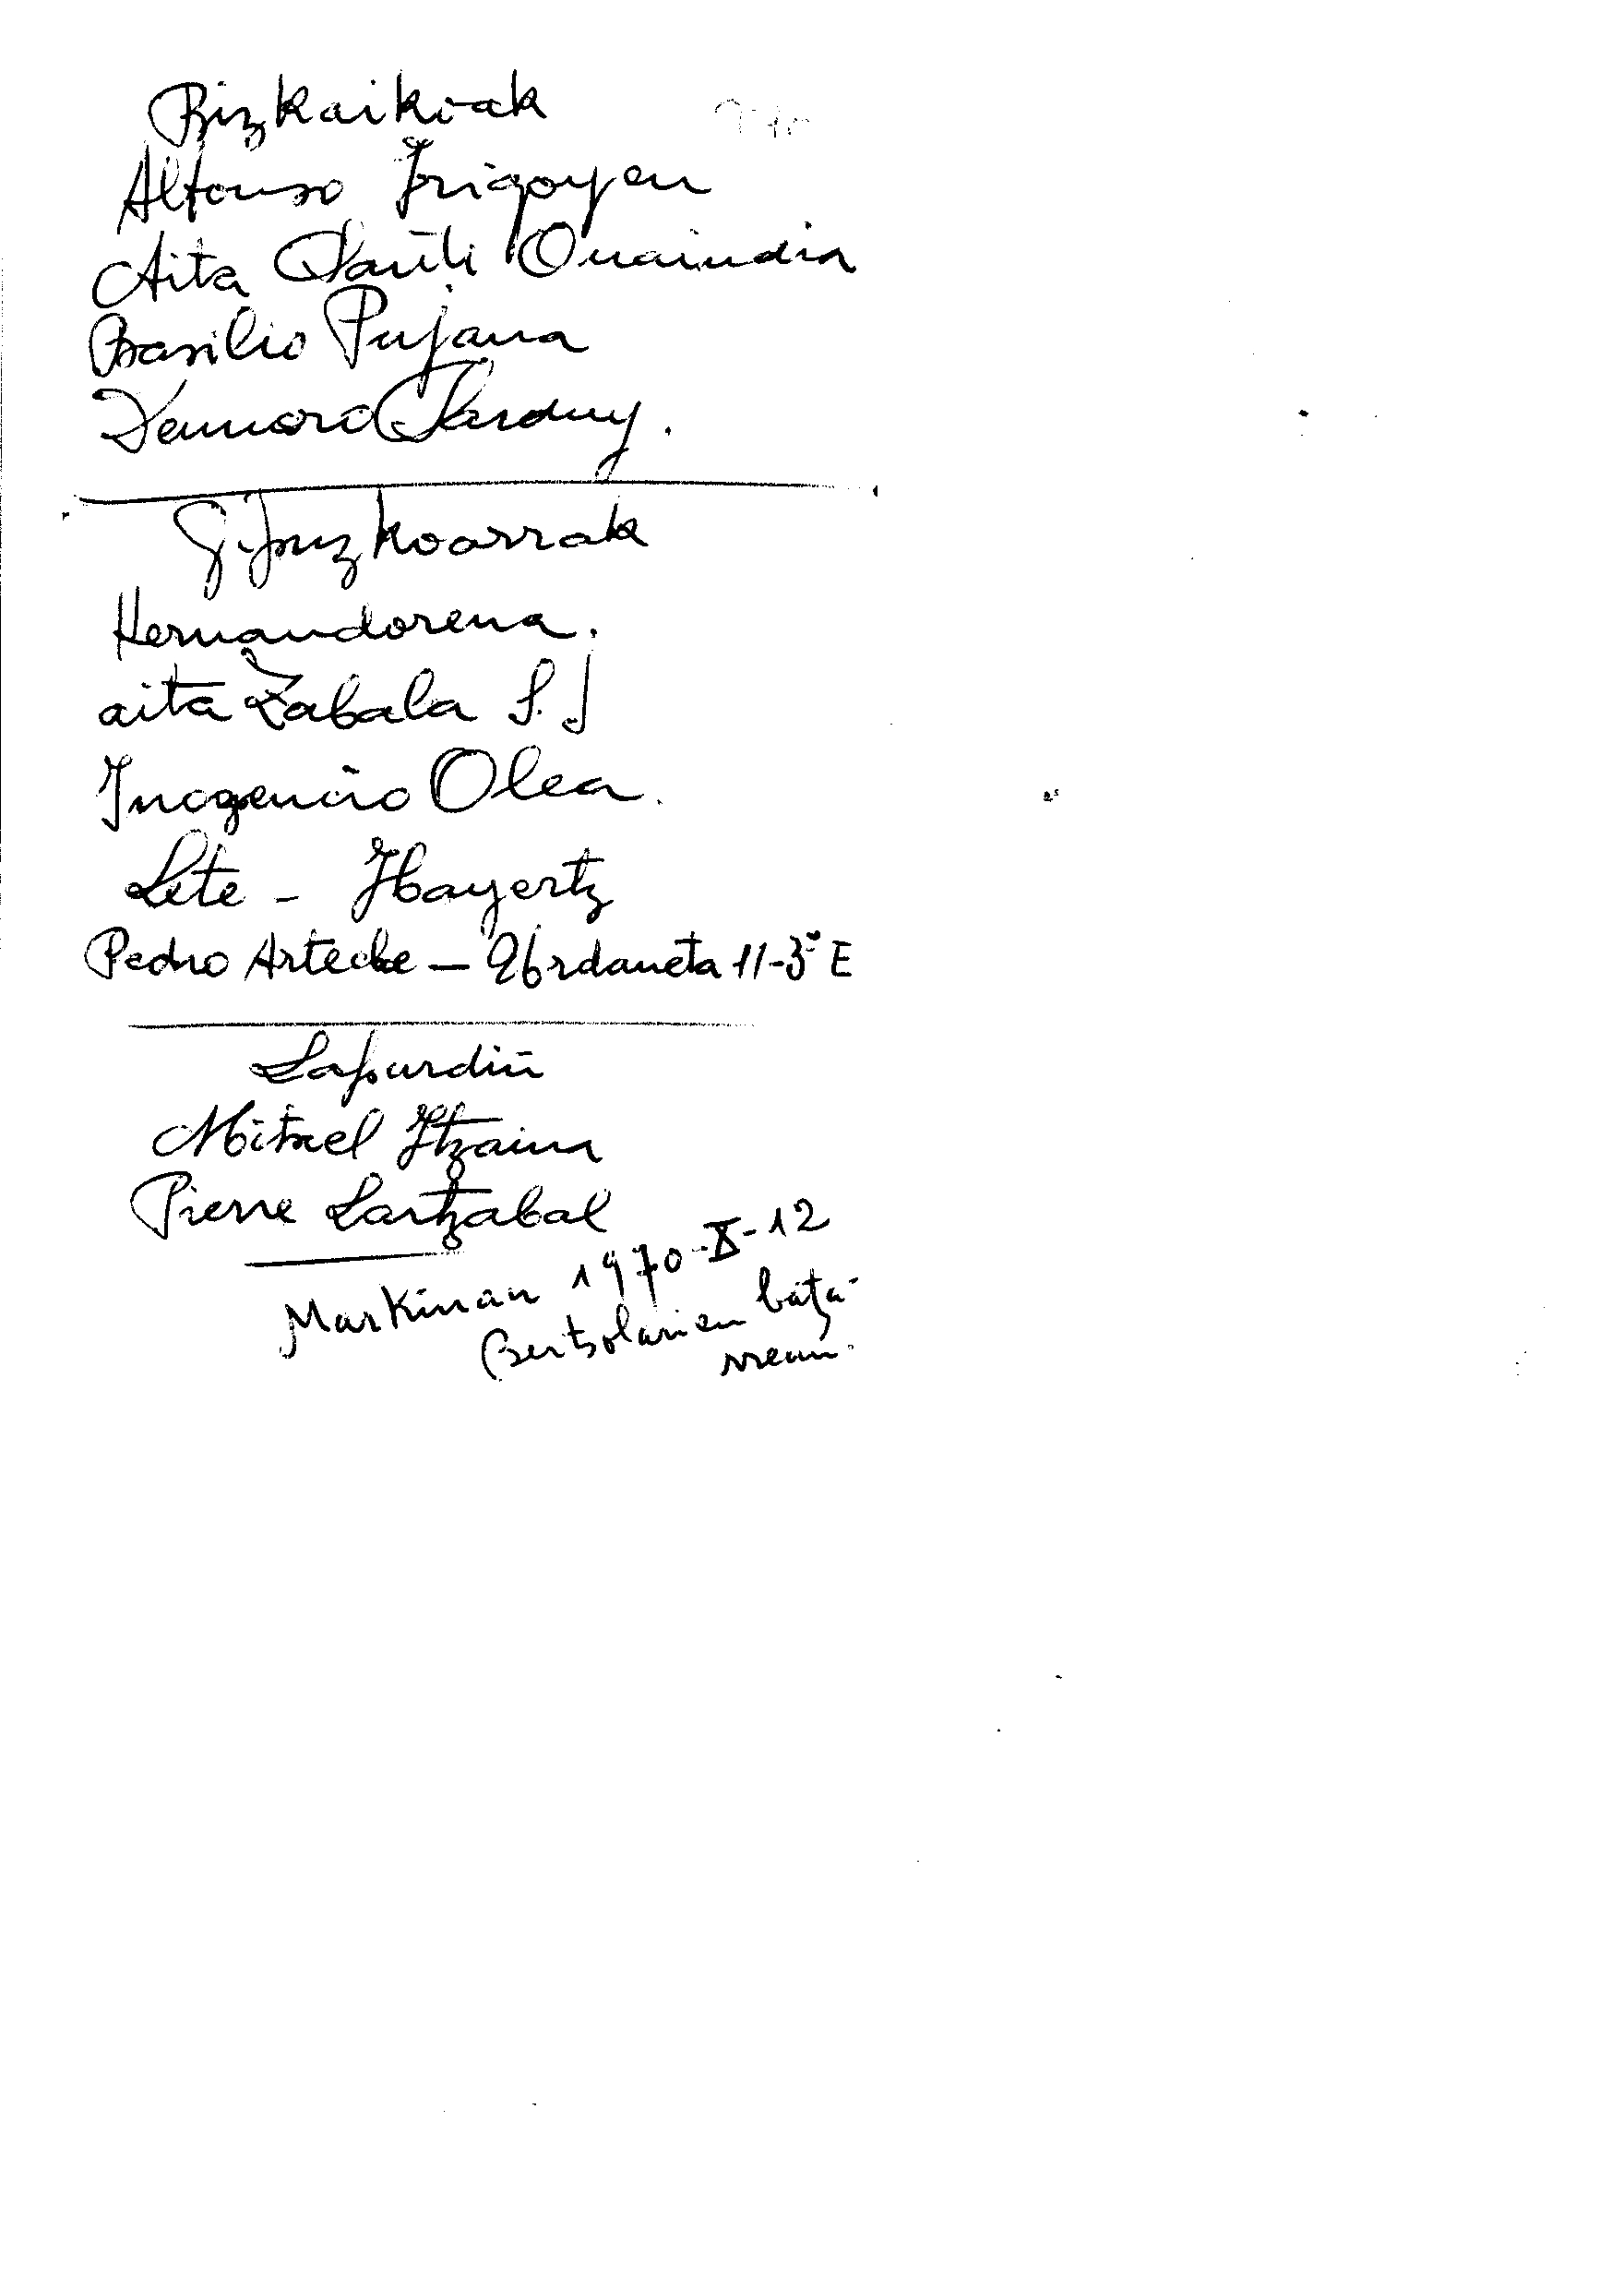 Bizkaikoak
Alfonso Irigoyen
Aita Santi Onaindia
Basilio Pujana
Deunoro Sarduy.
Gipuzkoarrak
Hernandorena.
aita Zabala S.J
Inozencio Olea.
Lete - Ibayertz
Pedro Arteche - Urdaneta 11-3º E
Lapurdin
Mitxel Itzaina
Pierre Lartzabal
Markinan 1970-X-12
Bertsolarien batza-
rrean.